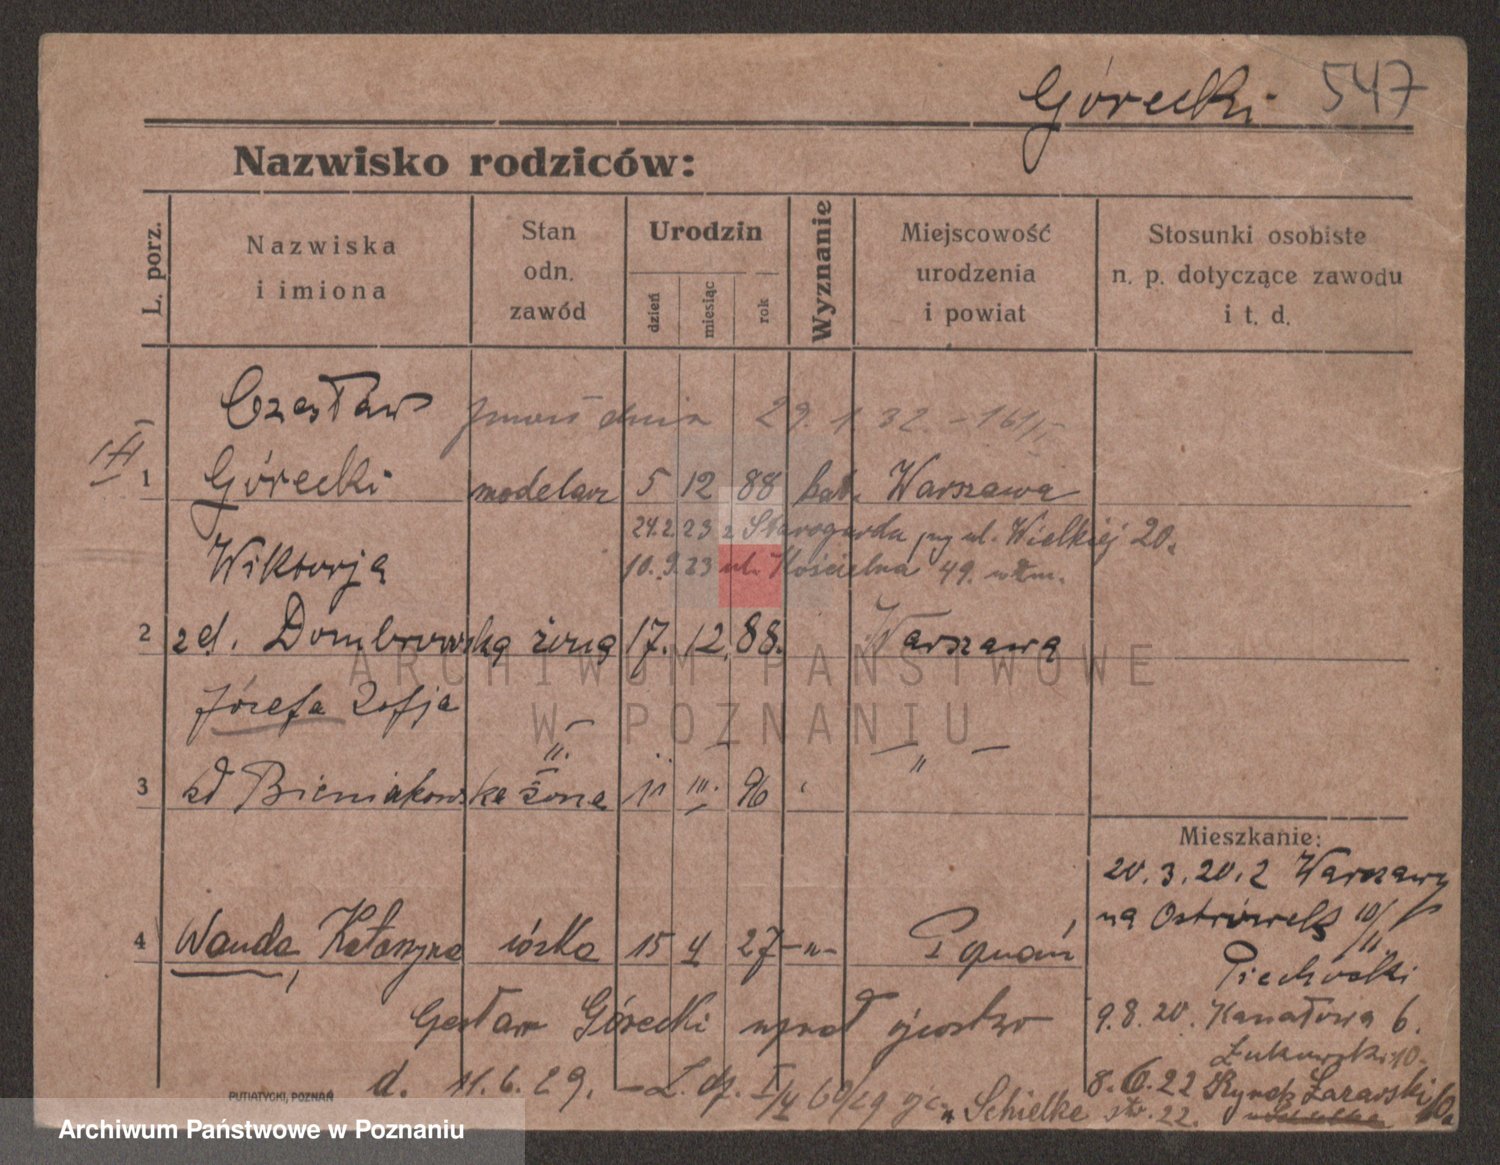 Górecki 547
Nazwisko rodziców:
L. porz.
Nazwiska
i imiona
Stan
odn.
zawód
Urodzin
dzień
miesiąc
rok
Wyznanie
Miejscowość
urodzenia
i powiat
Stosunki osobiste
n. p. dotyczące zawodu
i t. d.
Czesław dnia 29. 1 32. - 161/
1 Górecki modelarz 5 12 88 kat. Warszawa
24.2.23 z Starogardu przy ul. Wielkiej 20.
Wiktorja 10. 9. 23 ul. Kościelna 49.
2 z d. Dombrowska żona 17. 12. 88. Warszawa
Józefa Zofja
3 zd Bieniakowska żona 11 III. 96 „
Mieszkanie:
20.3.20. z Warszawy
na Ostrówek 10/
II.
4 Wanda, Katarzyna córka 15 4 27 -„- Poznań
Piechocki
Czesław Górecki uznał ojcostwo
9.8.20. Kanałowa 6.
Żukowski 10.
d. 11.6.29. - L. dz. 60/29
8.6.22 Rynek Łazarski
„ Schielke str. 22.
PUTIATYCKI, POZNAŃ
ARCHIWUM PAŃSTWOWE
W POZNANIU
Archiwum Państwowe w Poznaniu